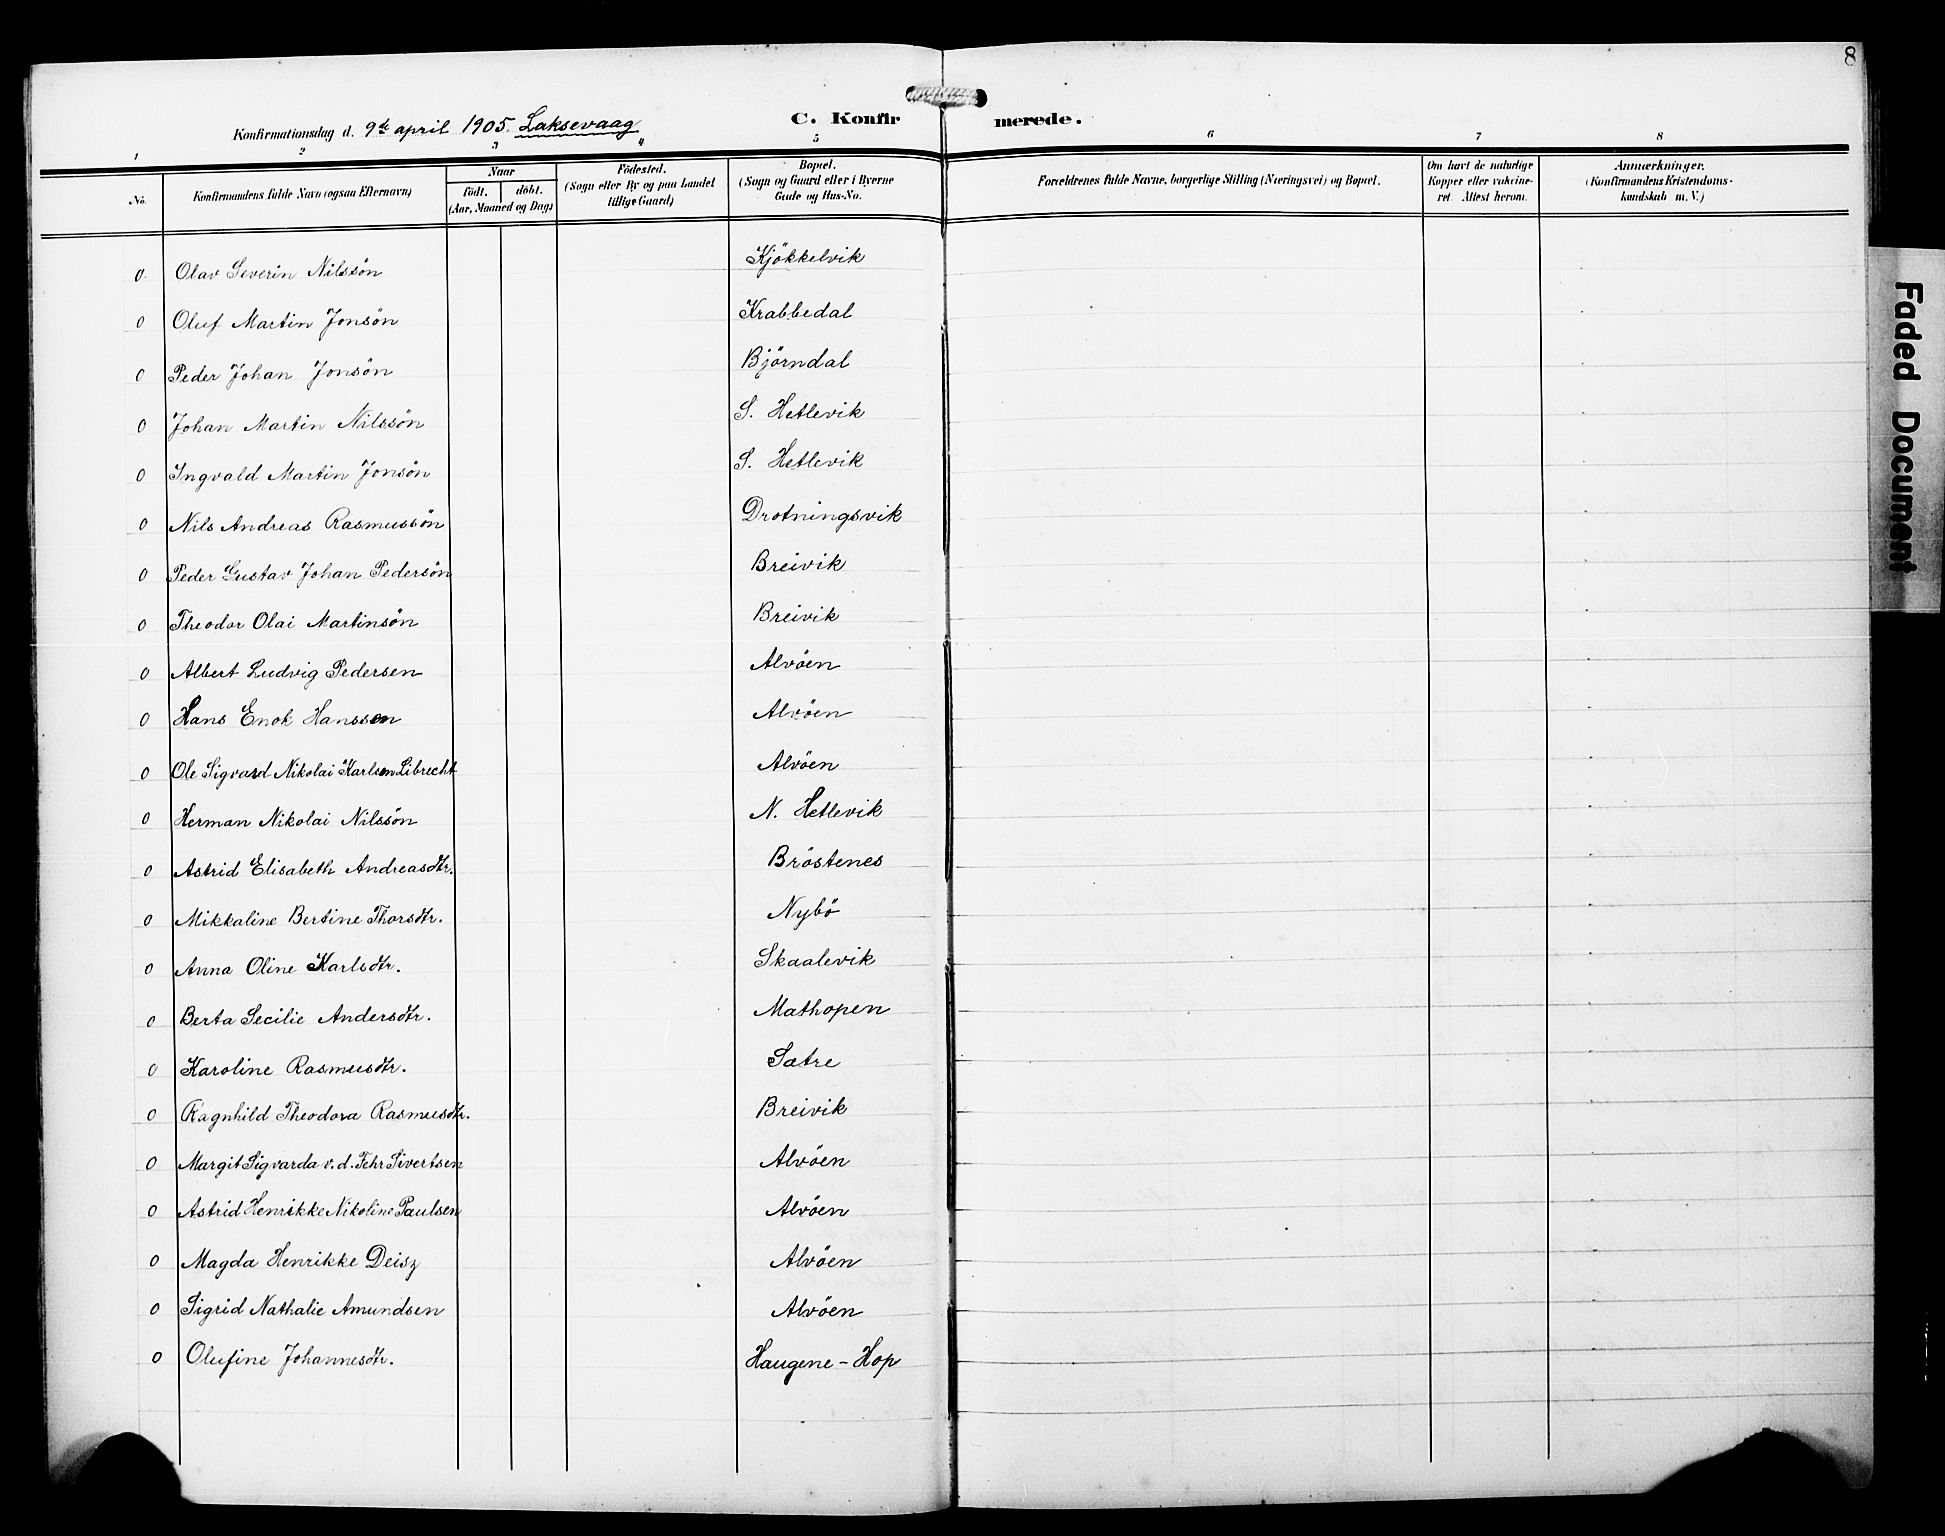 8
Konfirmationsdag d. 9de april 1905. Laksevaag
C. Konfirmerede.
1 2 3 4 5 6 7 8
No. Konfirmandens fulde Navn (ogsaa Efternavn) Naar födt. döbt. (Aar, Maaned og Dag) Födested. (Sogn eller By og paa Landet tillige Gaard) Bopæl. (Sogn og Gaard eller i Byerne Gade og Hus-No. Forældrenes fulde Navne, borgerlige Stilling (Næringsvei) og Bopæl. Om havt de naturlige Kopper eller vaccineret. Attest herom. Anmærkninger. (Konfirmandens Kristendomskundskab m. V.)
0 Olav Severin Nilssön Kjökkelvik
0 Oluf Martin Jonsön Krabbedal
0 Peder Johan Jonsön Björndal
0 Johan Martin Nilssön S. Hetlevik
0 Ingvald Martin Jonsön S. Hetlevik
0 Nils Andreas Rasmussön Drotningsvik
0 Peder Gustav Johan Pedersön Breivik
0 Theodor Olai Martinsön Breivik
0 Albert Ludvig Pedersen Alvöen
0 Hans Enok Hanssen Alvöen
0 Ole Sigvard Nikolai Karlsen Librecht Alvöen
0 Herman Nikolai Nilssön N. Hetlevik
0 Astrid Elisabeth Andreasdtr. Bröstenes
0 Mikkaline Bertine Thorsdtr. Nybö
0 Anna Oline Karlsdtr. Skaalevik
0 Berta Secilie Andersdtr. Mathopen
0 Karoline Rasmusdtr. Sætre
0 Ragnhild Theodora Rasmusdtr. Breivik
0 Margit Sigvarda v. d. Fehr Sivertsen Alvöen
0 Astrid Henrikke Nikoline Paulsen Alvöen
0 Magda Henrikke Deisz Alvöen
0 Sigrid Nathalie Amundsen Alvöen
0 Olufine Johannesdtr. Haugene - Hop
Faded Document